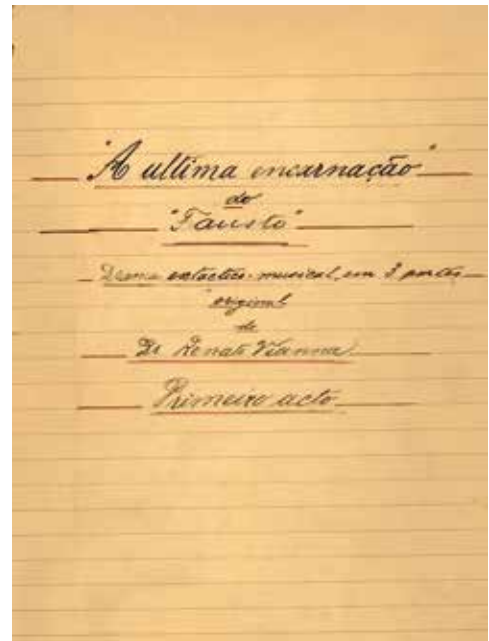 "A ultima encarnação"
do
"Fausto"
Drama extactico-musical, em 3 partes
original
de
Dr Renato Vianna
Primeiro acto